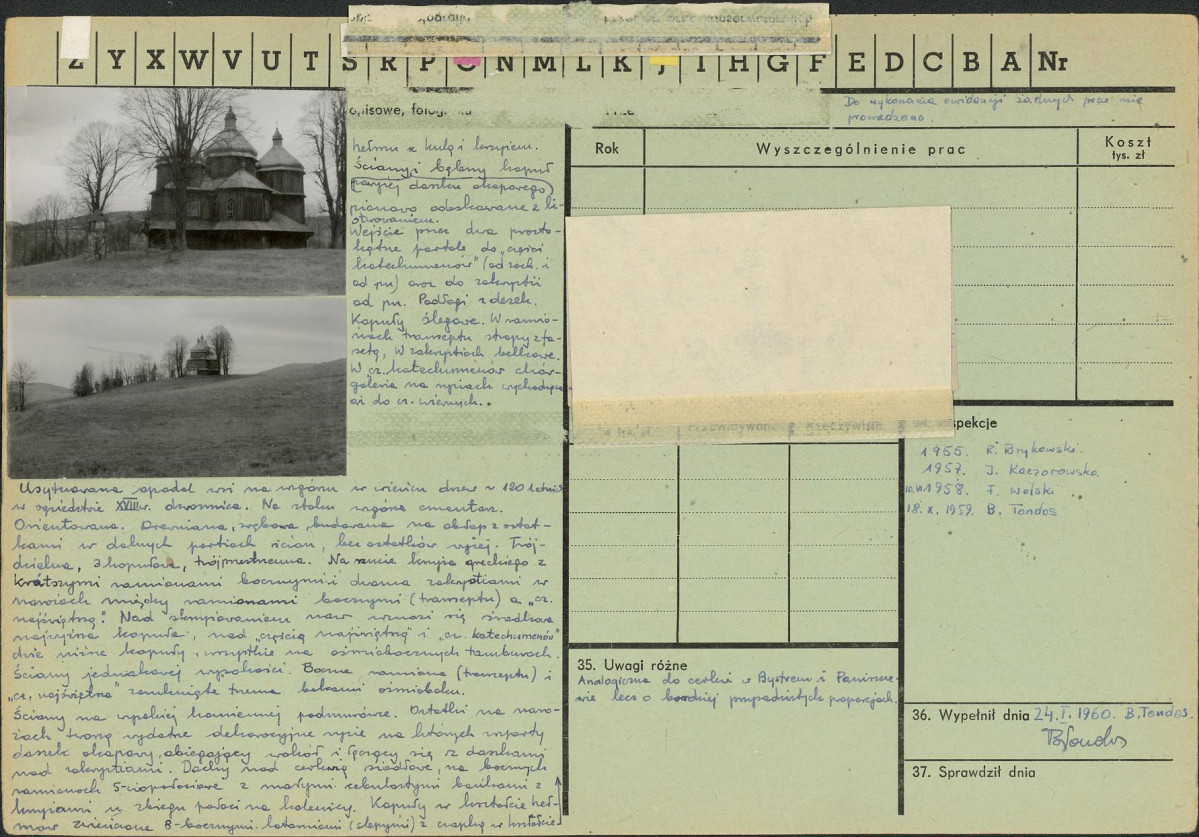 Z Y X W V U T S R P O N M L K J I H G F E D C B A Nr
opisowe,
Do wykonania ewidencji żadnych prac nie
prowadzono.
hełmu z kulą i krzyżem.
Ściany i bębny kopuł
powyżej daszku okapowego
pionowo odeskowane z li-
stwowaniem.
Wejście przez dwa prosto-
kątne portale do "części
katechumenów" (od zach. i
od pn) oraz do zakrystii
od pn. Podłogi z desek.
Kopuły ślegowe. W ramio-
nach transeptu stropy z fa-
setą, w zakrystiach belkowe.
W cz. katechumenów chór-
galeria na
aż do cz. wiernych.
Usytuowana opodal wsi na wzgórzu w wieńcu drzew v 120 letnich
w sąsiedztwie XVIII w. dzwonnicy. Na stoku wzgórza cmentarz.
Orientowana. Drewniana, zrębowa, budowana na obłap z ostat-
kami w dolnych partiach ścian, bez ostatków wyżej. Trój-
dzielna, 3 kopułowa, trójprzestrzenna. Na rzucie krzyża greckiego z
krótszymi ramionami bocznymi i dwoma zakrystiami w
narożach między ramionami bocznymi (transeptu) a "cz.
najświętszą". Nad skrzyżowaniem naw wznosi się środkowa
najwyższa kopuła, nad "częścią najświętszą" i "cz. katechumenów"
dwie niższe kopuły, wszystkie na ośmiobocznych tamburach.
Ściany jednakowej wysokości. Boczne ramiona (transeptu) i
"cz. najświętsza" zamknięte trzema bokami ośmioboku.
Ściany na wysokiej kamiennej podmurówce. Ostatki na naro-
żach tworzą wydatne dekoracyjne rysie na których wsparty
daszek okapowy, obiegający wokół i łączący się z daszkami
nad zakrystiami. Dachy nad cerkwią siodłowe, na bocznych
ramionach 5-ciopołaciowe z małymi cebulastymi bańkami z
krzyżami u zbiegu połaci na kalenicy. Kopuły w kształcie heł-
mów zwieńczone 8-bocznymi latarniami (ślepymi) z czapką w kształcie
Rok
Wyszczególnienie prac
Koszt
tys. zł
Przewidywane
Rzeczywiste
spekcje
1955. R. Brykowski.
1957. J. Kaczorowska.
1958. F. Wolski
18. X. 1959. B. Tondos
35. Uwagi różne
Analogiczna do cerkwi w Bystrem i Paniszcze-
wie lecz o bardziej przysadzistych proporcjach.
36. Wypełnił dnia 24. I. 1960. B. Tondos.
BTondos
37. Sprawdził dnia